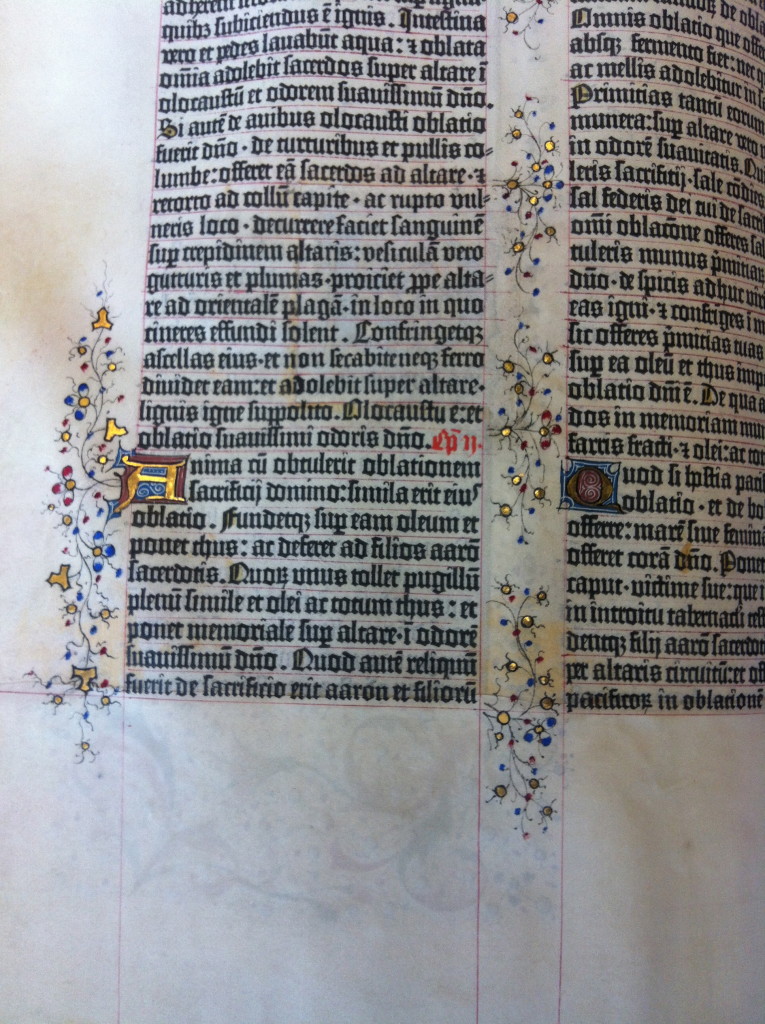 quibz subiciendus ē ignis. Intestina
vero et pedes lavabūt aqua: ⁊ oblata
om̄ia adolebit sacerdos super altare ī
olocaustū et odorem suavissimū dn̄o.
Si autē de avibus olocausti oblatio
fuerit dn̄o · de turturibus et pullis co⸗
lumbe: offeret eā sacerdos ad altare · ⁊
retorto ad collū capite · ac rupto vul⸗
neris loco · decurrere faciet sanguinē
sup crepidinem altaris: vesiculā vero
gutturis et plumas · proiciet ꝓpe alta⸗
re ad orientalē plagā · in loco in quo
cineres effundi solent. Confringetqꝫ
ascellas eius · et non secabit eneqꝫ ferro
dividet eam: et adolebit super altare ·
lignis igne supposito. Olocaustū ē: et
oblatio suavissimi odoris dn̄o. Cp̄ II.
Anima cū obtulerit oblationem
sacrificij domino: simila erit eius
oblatio. Fundetqꝫ sup eam oleum et
ponet thus: ac deferet ad filios aarō
sacerdotis. Quoꝝ unus tollet pugillū
plenū simile et olei ac totum thus: et
ponet memoriale sup altare · ī odorē
suavissimū dn̄o. Quod autē reliquū
fuerit de sacrificio erit aaron et filiorū
Omnis oblatio que
absqꝫ fermento fiet:
ac mellis adolebitur in
Primitias tantū eorum
munera: sup altare vero
in odorē suavitatis.
sacrificij · sale
sal federis dei tui de
om̄i oblatōne offeres
tuleris munus p̄mitias
dn̄o · de spicis adhuc
eas igni · ⁊ confriges
sic offeres p̄mitias tuas
sup ea oleū et thus
oblatio dn̄i ē. De qua
dos in memoriam
farris fracti · ⁊ olei: ac
Quod si hostia
oblatio · et de
offerre: marē sive
offeret corā dn̄o.
caput · victime sue: que
in introitu
dentqꝫ filij aarō
per altaris circuitū: et
pacificoꝝ in oblationē